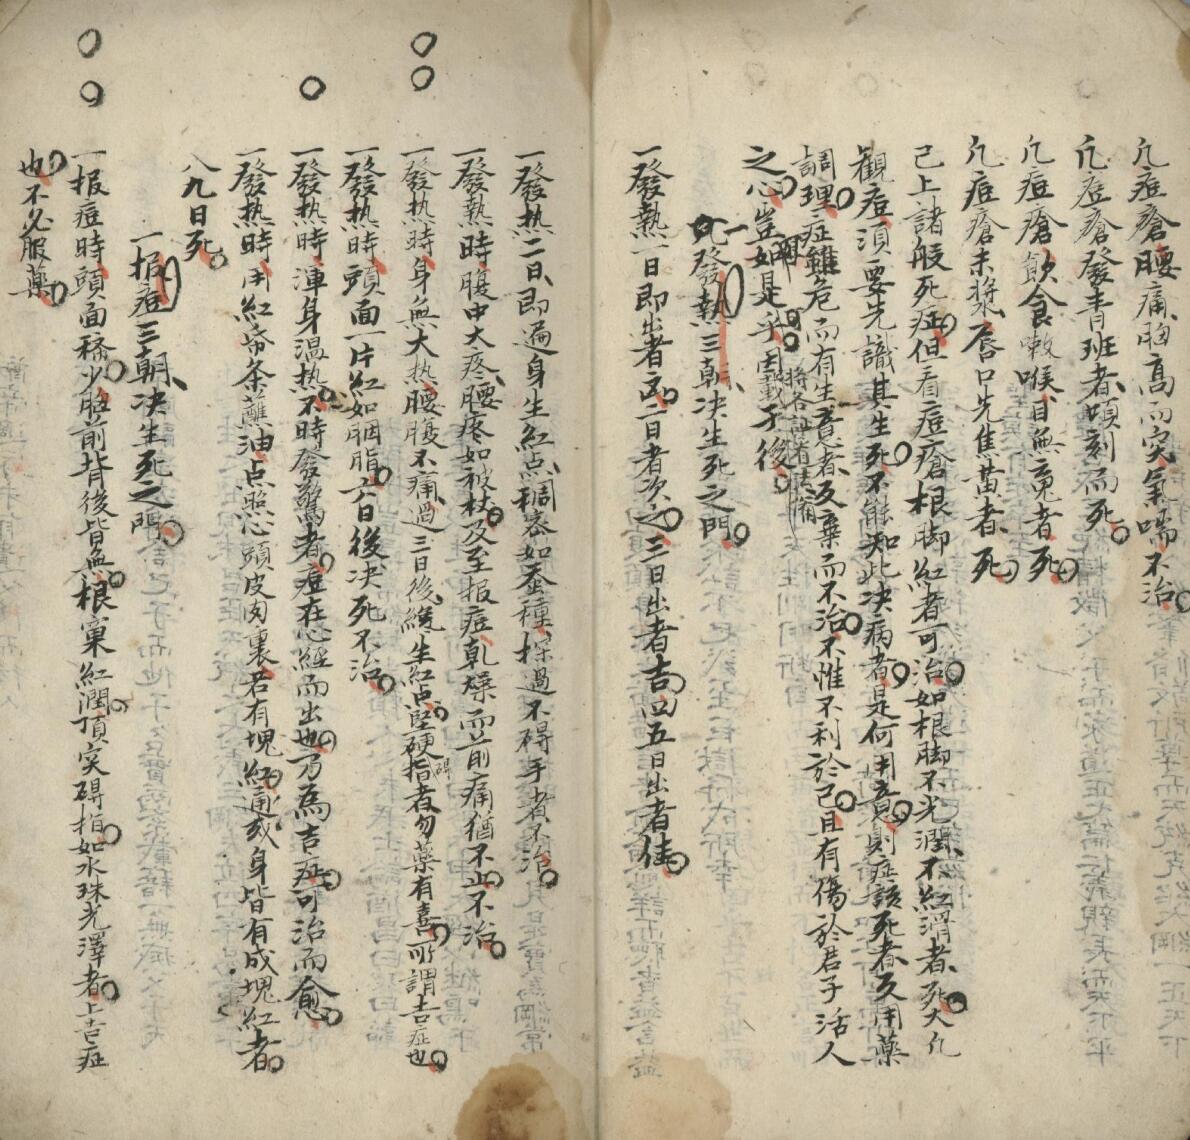 凢痘瘡腰痛胸高而突氣喘不治
凢痘瘡發青班者頃刻而死
凢痘瘡飲食嗽喉目無竟者死
凢痘瘡未漿唇口先焦黃者死
已上諸般死症但看痘瘡根脚紅者可治如根脚不光潤不紅滑者死大凢
觀痘湏要先識其生死不能知此决病者是何用意則症該死者反用藥
調理症雖危而有生意者反棄而不治不惟不利於己且有傷於君子活人
之心豈如是乎因載于後
一凢發熱三朝决生死之門
一發熱一日即出者凶二日者次之三日出者吉四五日出者佳
一發热二日即遍身生紅点稠密如蚕種摸過不碍手者不治
一發熱時腹中大疼腰疼如被杖及至报痘乹燥而前痛猶不止不治
一發热時身無大热腰腹不痛過三日後纔生紅点堅硬碍指者勿藥有喜所謂吉症也
一發热時頭面一片紅如胭脂六日後决死不治
一發热時渾身温热不時發驚者痘在心經而出也乃為吉症可治而愈
一發热時用紅帋条蘸油点照心頭皮肉裏若有塊紅通或身皆有成塊紅者
八九日死
一报痘三朝决生死之門
一报痘時頭面稀少胸前背後皆無根窠紅潤頂突碍指如水珠光澤者上吉症
也不必服藥